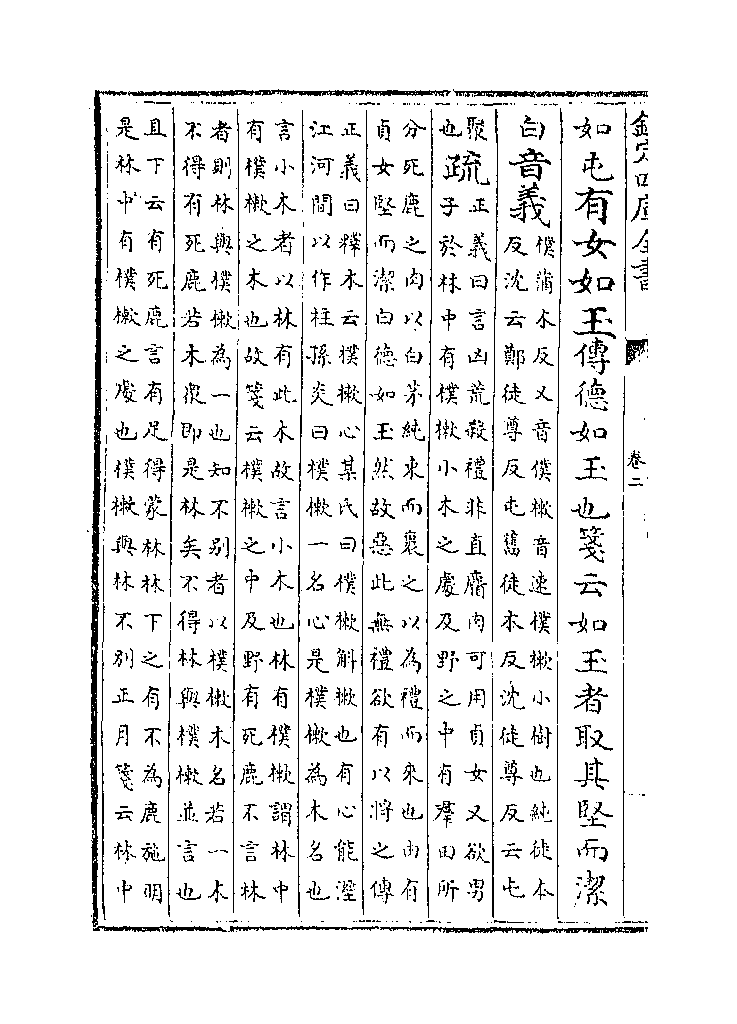 欽定四庫全書
卷二
如屯有女如玉傳德如玉也箋云如玉者取其堅而潔
白音義樸蒲木反又音僕樕音速樸樕小樹也純徒本
反沈云鄭徒尊反屯舊徒本反沈徒尊反云屯
聚
也疏正義曰言凶荒殺禮非直麕肉可用貞女又欲男
子於林中有樸樕小木之處及野之中有羣田所
分死鹿之肉以白茅純束而裹之以為禮而來也由有
貞女堅而潔白德如玉然故惡此無禮欲有以將之傳
正義曰釋木云樸樕心某氏曰樸樕斛樕也有心能溼
江河間以作柱孫炎曰樸樕一名心是樸樕為木名也
言小木者以林有此木故言小木也林有樸樕謂林中
有樸樕之木也故箋云樸樕之中及野有死鹿不言林
者則林與樸樕為一也知不别者以樸樕木名若一木
不得有死鹿若木衆即是林矣不得林與樸樕並言也
且下云有死鹿言有足得蒙林林下之有不為鹿施明
是林中有樸樕之處也樸樕與林不别正月箋云林中